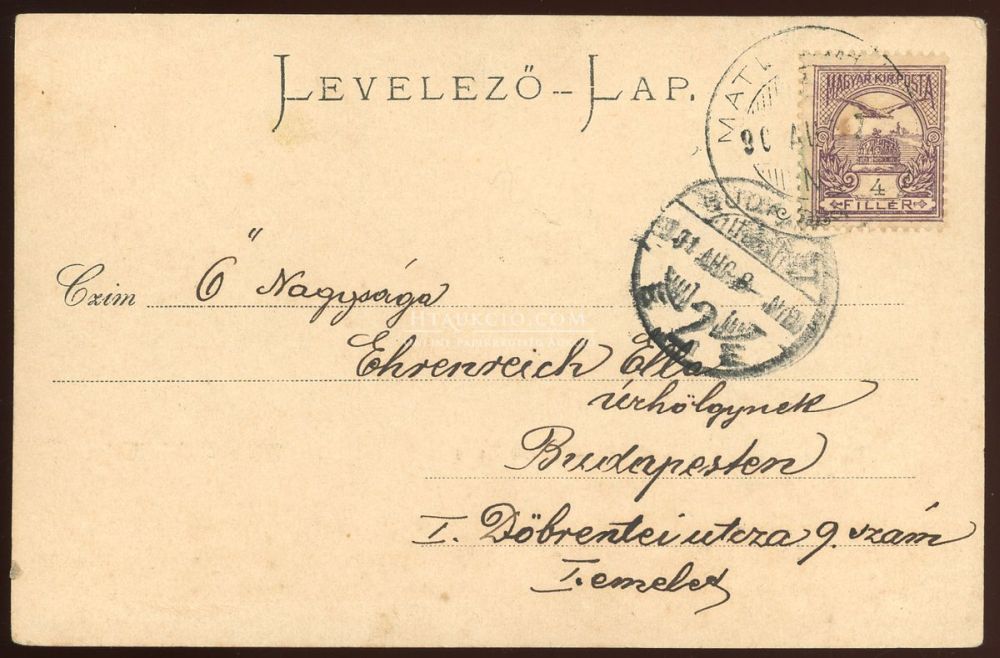 LEVELEZŐ-LAP.
MAGYAR KIR. POSTA
4
FILLÉR
MATL
901 AUG 8
2
Czim Ő Nagysága
HTAUKCIO.COM
ONLINE PAPÍRRÉGISÉG AUKCIÓ
Ehrenreich Ella
úrhölgynek
Budapesten
I. Döbrentei utcza 9. szám
I. emelet